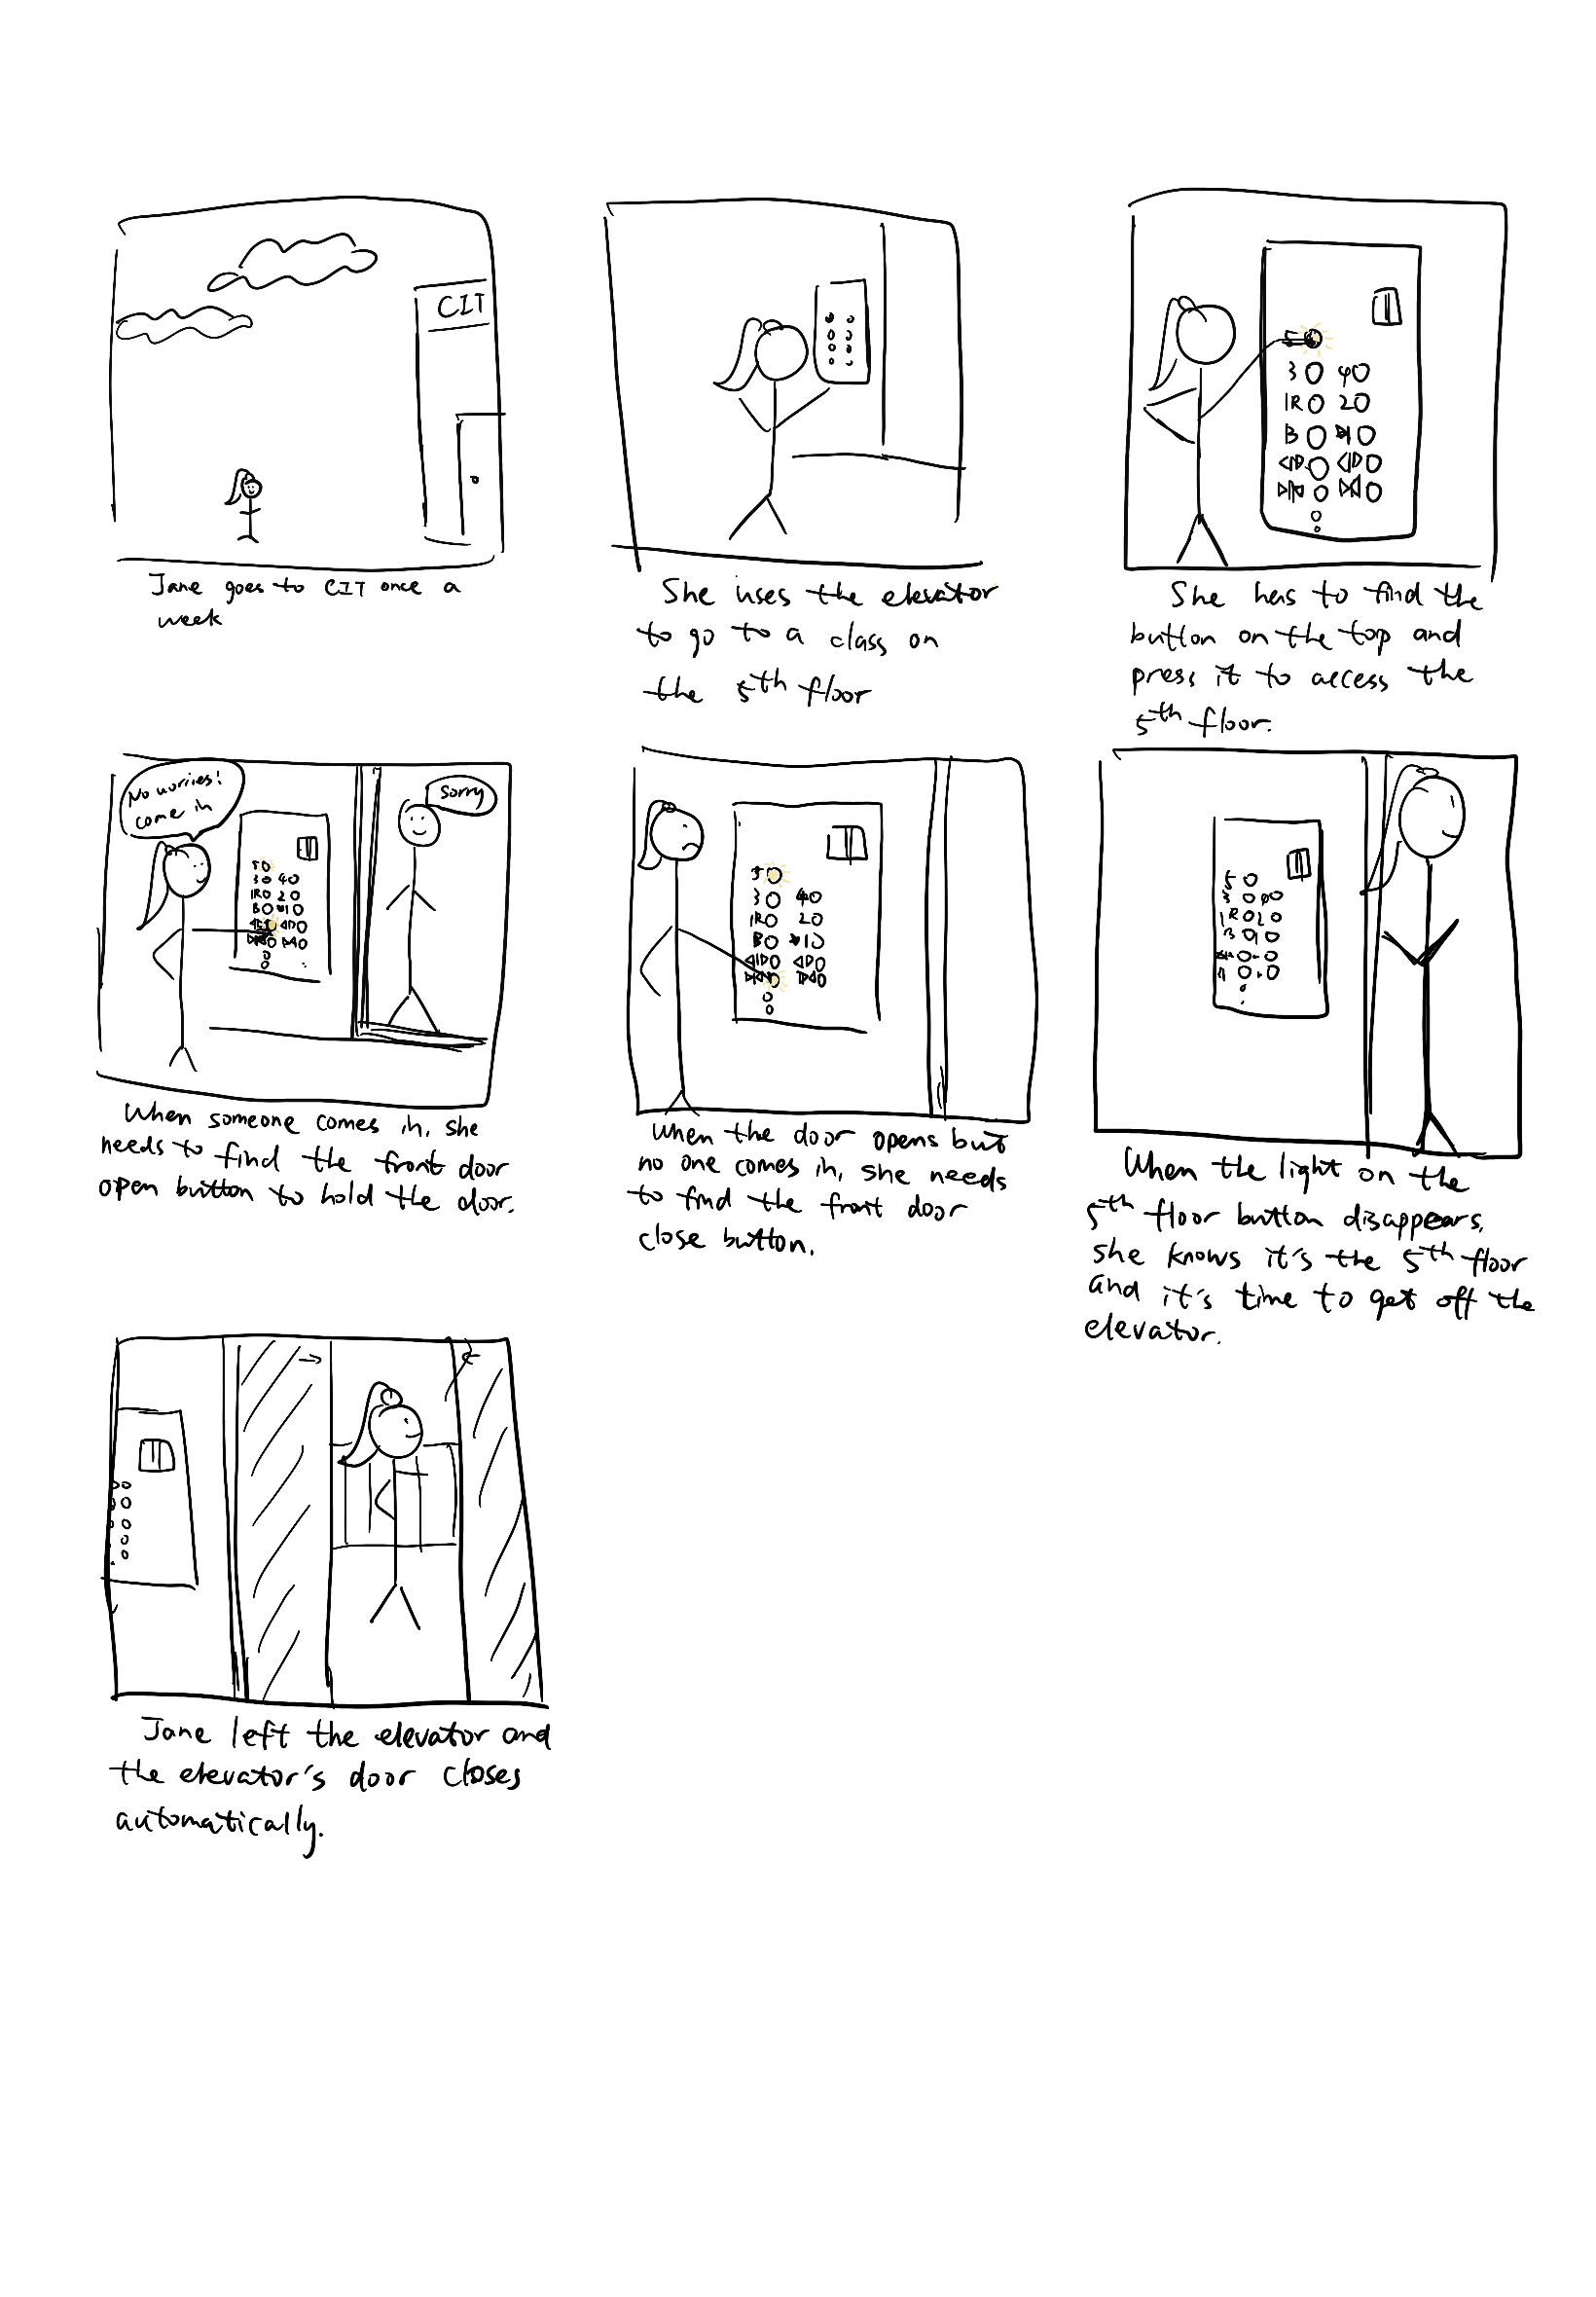 CIT
Jane goes to CIT once a
week
She uses the elevator
to go to a class on
the 5th floor
3 4
1R 2
B 1
She has to find the
button on the top and
press it to access the
5th floor.
No worries!
come in
Sorry
5
3 4
1R 2
B 1
When someone comes in, she
needs to find the front door
open button to hold the door.
5
3 4
1R 2
B 1
When the door opens but
no one comes in, she needs
to find the front door
close button.
5
3 4
1R 2
B 1
When the light on the
5th floor button disappears,
she knows it's the 5th floor
and it's time to get off the
elevator.
Jane left the elevator and
the elevator's door closes
automatically.